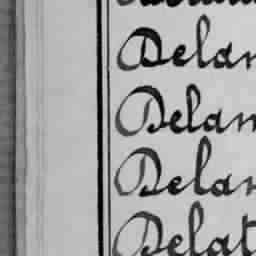 Delan
Delan
Delan
Delat